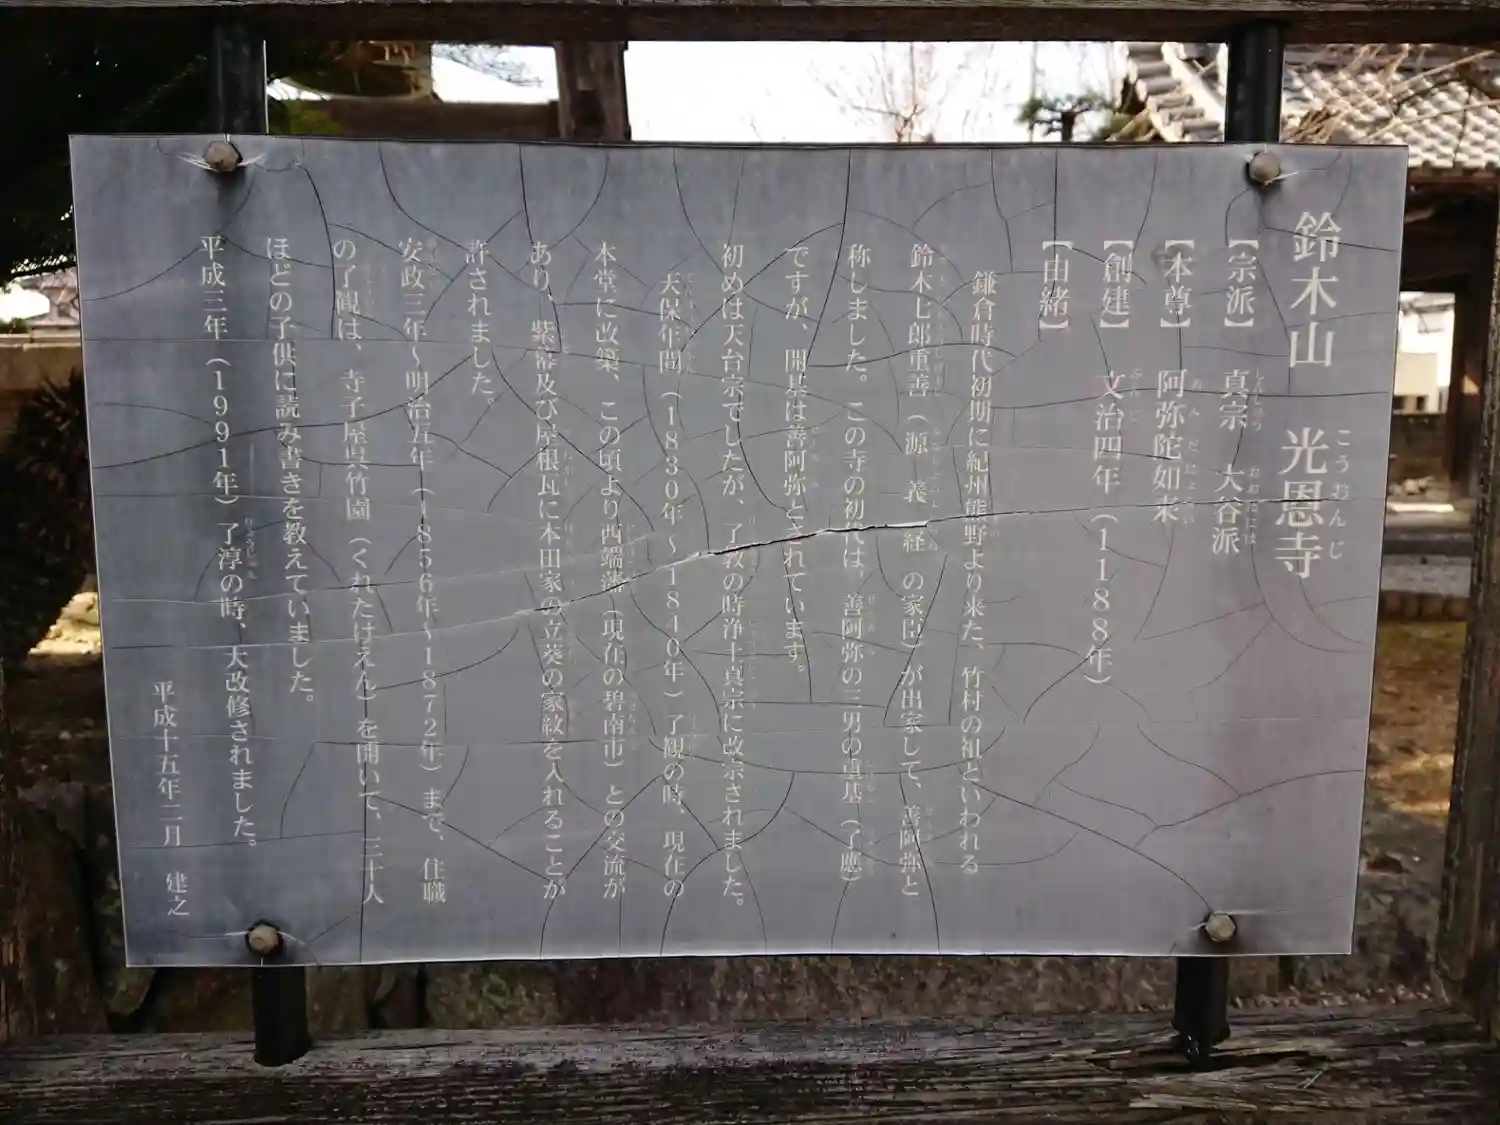 鈴木山 光恩寺
【宗派】 真宗 大谷派
【本尊】 阿弥陀如来
【創建】 文治四年（1188年）
【由緒】
鎌倉時代初期に紀州熊野より来た、竹村の祖といわれる
鈴木七郎重善（源義経の家臣）が出家して、善阿弥と
称しました。この寺の初代は、善阿弥の三男の真基（了應）
ですが、開基は善阿弥とされています。
初めは天台宗でしたが、了教の時浄土真宗に改宗されました。
天保年間（1830年～1840年）了観の時、現在の
本堂に改築、この頃より西端藩（現在の碧南市）との交流が
あり、紫幕及び屋根瓦に本田家の立葵の家紋を入れることが
許されました。
安政三年～明治五年（1856年～1872年）まで、住職
の了観は、寺子屋呉竹園（くれたけえん）を開いて、三十人
ほどの子供に読み書きを教えていました。
平成三年（1991年）了淳の時、大改修されました。
平成十五年二月 建之